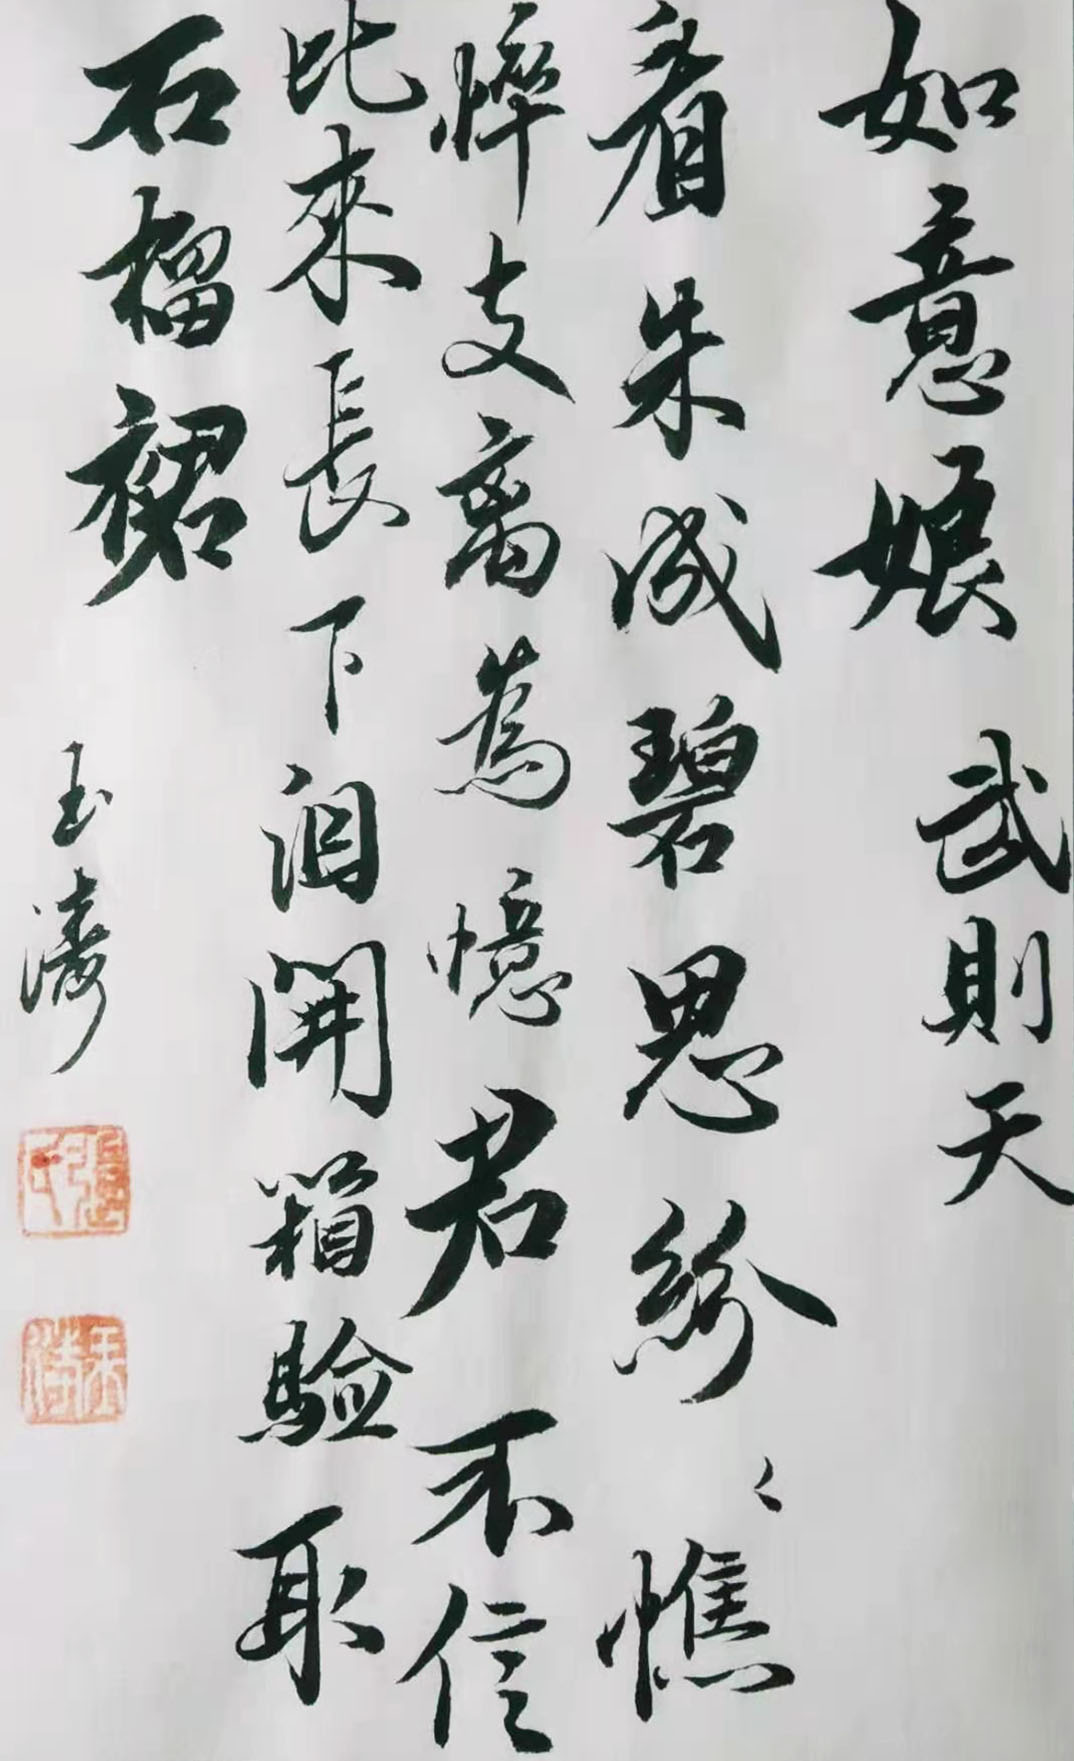 如意娘 武則天
看朱成碧思紛〻憔
悴支離為憶君不信
比來長下淚開箱驗取
石榴裙
玉濤